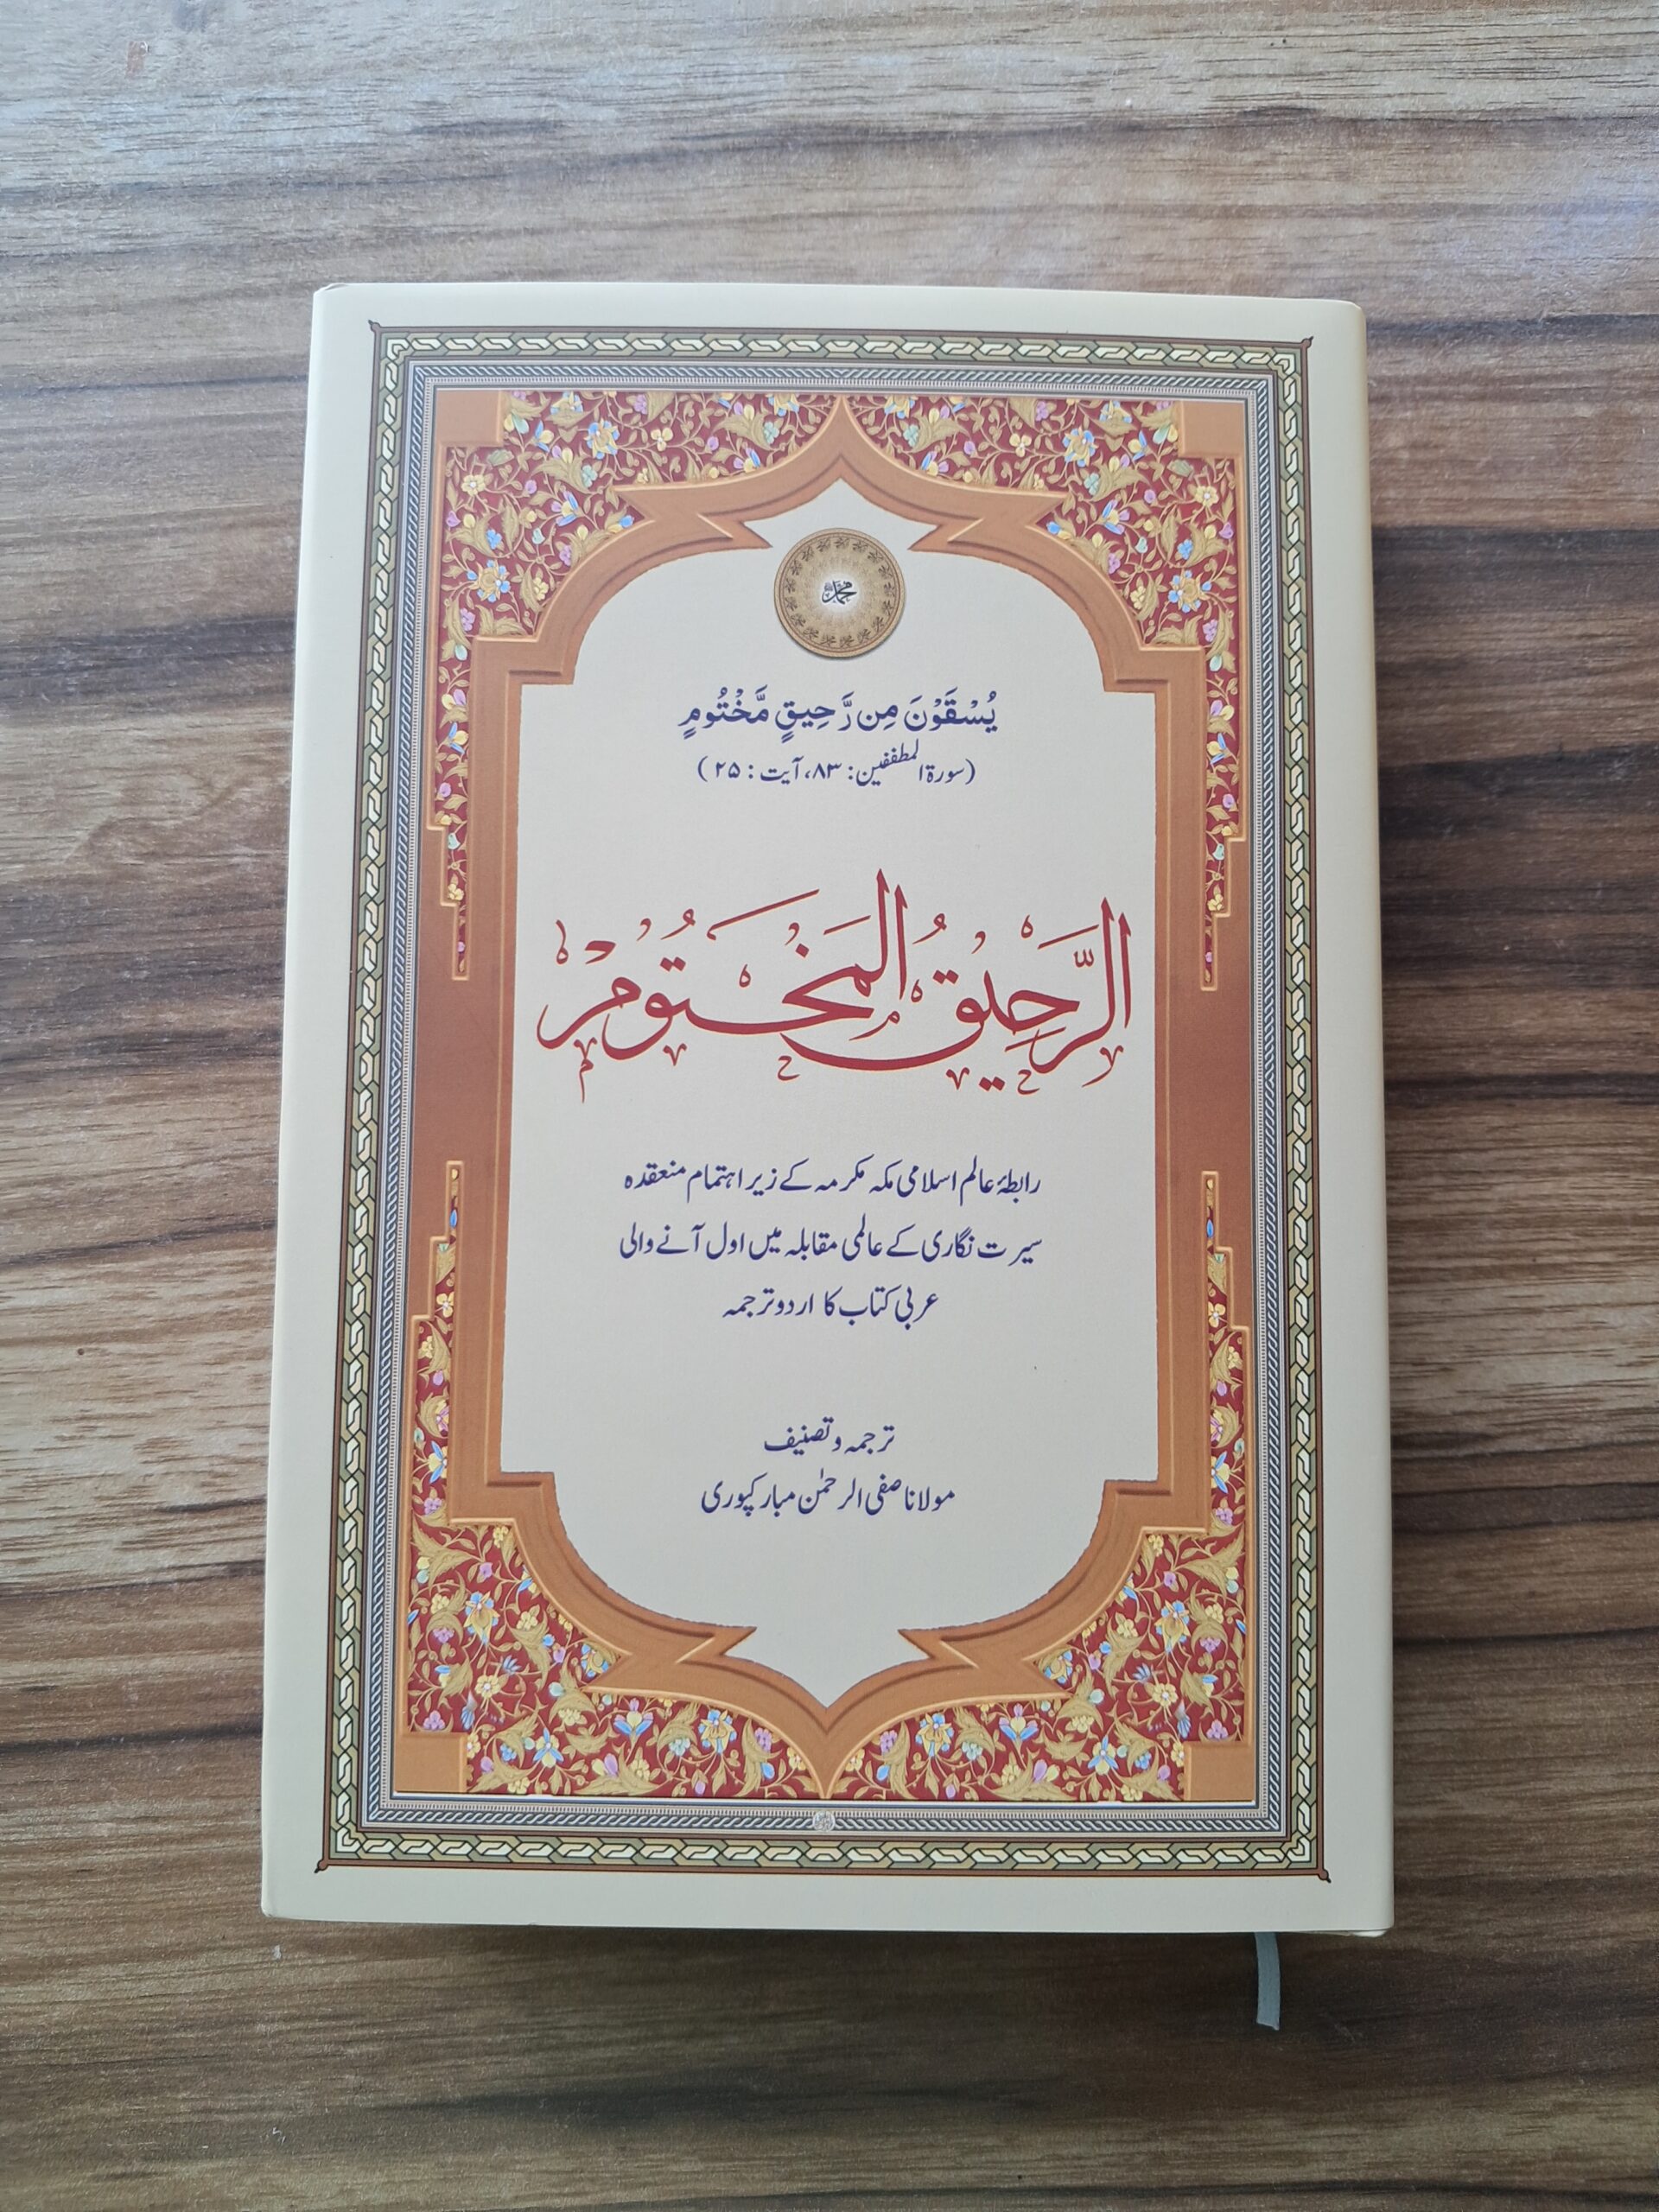 محمد
يُسْقَوْنَ مِن رَّحِيقٍ مَّخْتُومٍ
(سورۃ المطففین: ۸۳، آیت: ۲۵)
الرَّحِيقُ المَخْتُومْ
رابطۂ عالم اسلامی مکہ مکرمہ کے زیر اہتمام منعقدہ
سیرت نگاری کے عالمی مقابلہ میں اول آنے والی
عربی کتاب کا اردو ترجمہ
ترجمہ و تصنیف
مولانا صفی الرحمٰن مبارکپوری